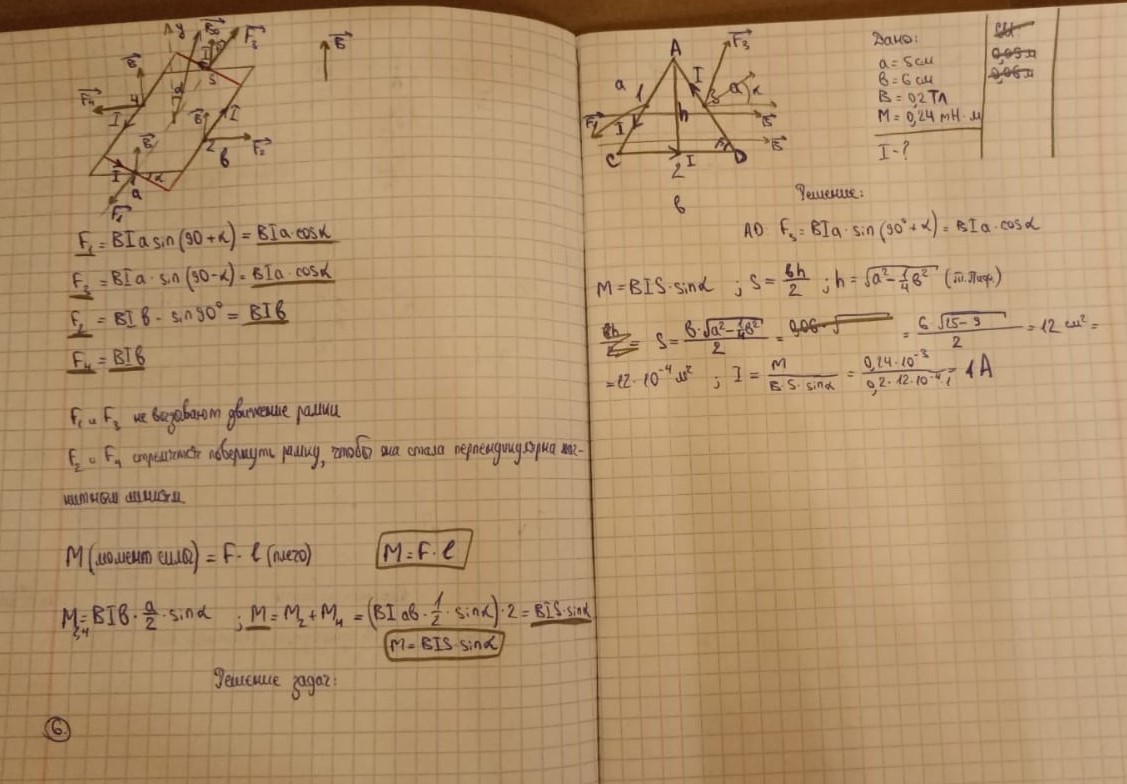 F₁ = BIa sin(90+α) = BIa·cosα
F₃ = BIa·sin(90-α) = BIa·cosα
F₂ = BIв·sin90° = BIв
F₄ = BIв
F₁ и F₃ не вызывают движение рамки
F₂ и F₄ стремятся повернуть рамку, чтобы она стала перпендикулярна маг-
нитным линиям
M (момент силы) = F·l (плечо)
M = F·l
M₂,₄ = BIв·a/2·sinα ; M = M₂+M₄ = (BIaв·1/2·sinα)·2 = BIS·sinα
M = BIS·sinα
Решение задач:
6.
A
F₃
a
1
I
I
3
h
α
α
F₁
I
B
B
C
2
I
D
в
Дано:
a = 5 см
в = 6 см
B = 0,2 Тл
M = 0,24 mН·м
I - ?
СИ
0,05 м
0,06 м
Решение:
AD: F₃ = BIa·sin(90°+α) = BIa·cosα
M = BIS·sinα ; S = вh/2 ; h = √(a²-1/4в²) (т. Пиф.)
S = в·√(a²-1/4в²)/2 = = 6√(25-9)/2 = 12 см² =
= 12·10⁻⁴ м² ; I = M/(B·S·sinα) = 0,24·10⁻³/(0,2·12·10⁻⁴·1) = 1A